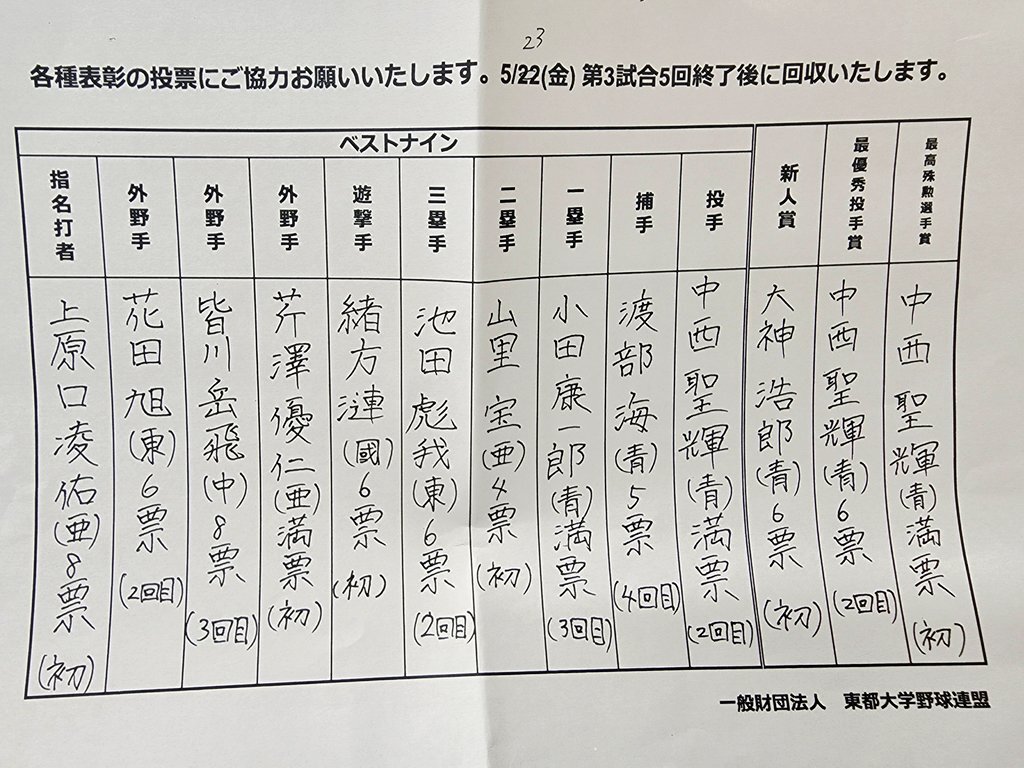 23
各種表彰の投票にご協力お願いいたします。5/22(金) 第3試合5回終了後に回収いたします。
最高殊勲選手賞
中西 聖輝(青)満票(初)
最優秀投手賞
中西 聖輝(青)6票(2回目)
新人賞
大神 浩郎(青)6票(初)
ベストナイン
投手
中西 聖輝(青)満票(2回目)
捕手
渡部 海(青)5票(4回目)
一塁手
小田 康一郎(青)満票(3回目)
二塁手
山里 宝(亜)4票(初)
三塁手
池田 彪我(東)6票(2回目)
遊撃手
緒方 漣(國)6票(初)
外野手
芹澤 優仁(亜)満票(初)
外野手
皆川 岳飛(中)8票(3回目)
外野手
花田 旭(東)6票(2回目)
指名打者
上原口 凌佑(亜)8票(初)
一般財団法人 東都大学野球連盟